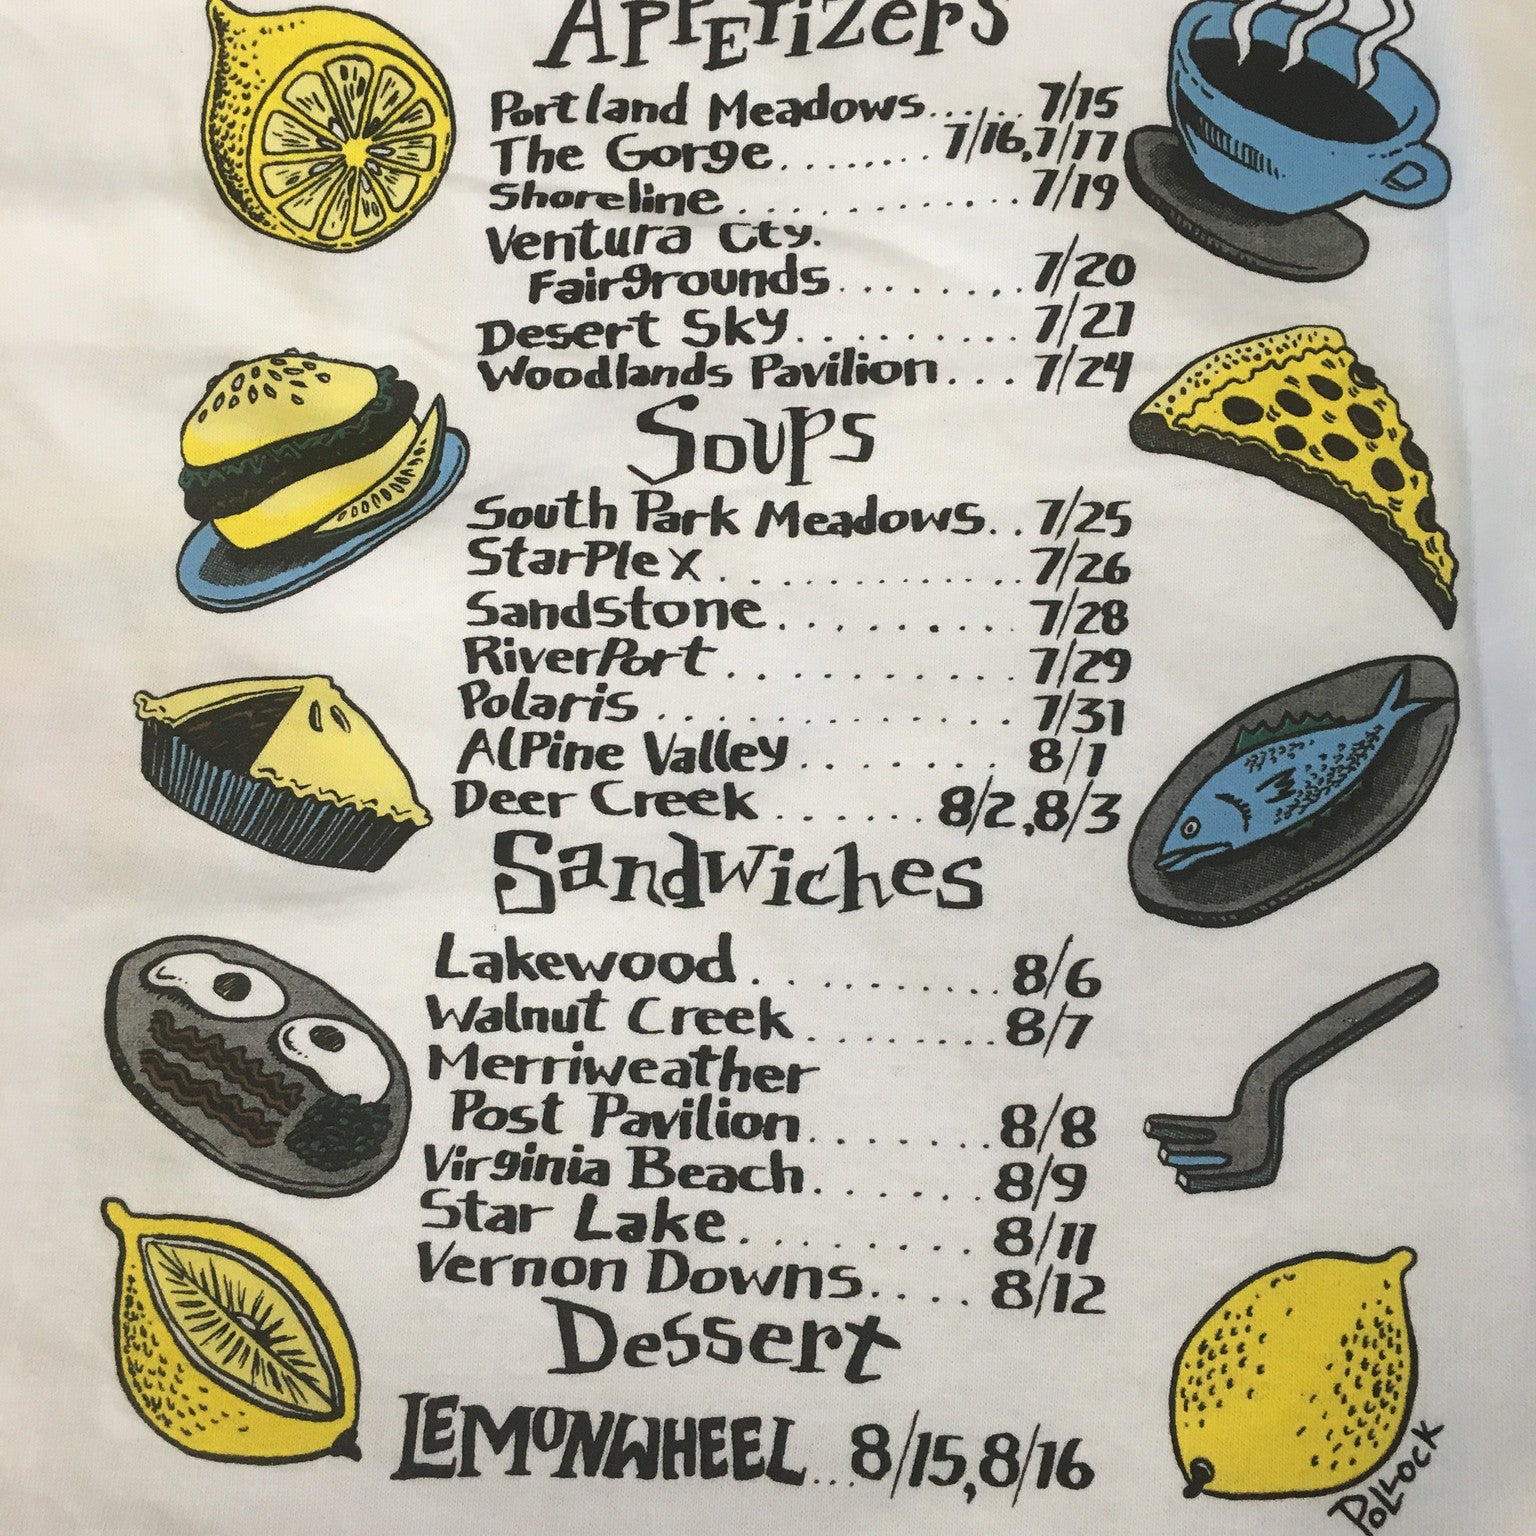 Appetizers
Portland Meadows...... 7/15
The Gorge........ 7/16,7/17
Shoreline............. 7/19
Ventura Cty.
Fairgrounds........ 7/20
Desert Sky.......... 7/21
Woodlands Pavilion... 7/24
Soups
South Park Meadows.. 7/25
StarPlex............. 7/26
Sandstone.......... 7/28
RiverPort........... 7/29
Polaris.............. 7/31
Alpine Valley........ 8/1
Deer Creek....... 8/2,8/3
Sandwiches
Lakewood........... 8/6
Walnut Creek......... 8/7
Merriweather
Post Pavilion........ 8/8
Virginia Beach....... 8/9
Star Lake......... 8/11
Vernon Downs.... 8/12
Dessert
LEMONWHEEL... 8/15,8/16
POLLOCK